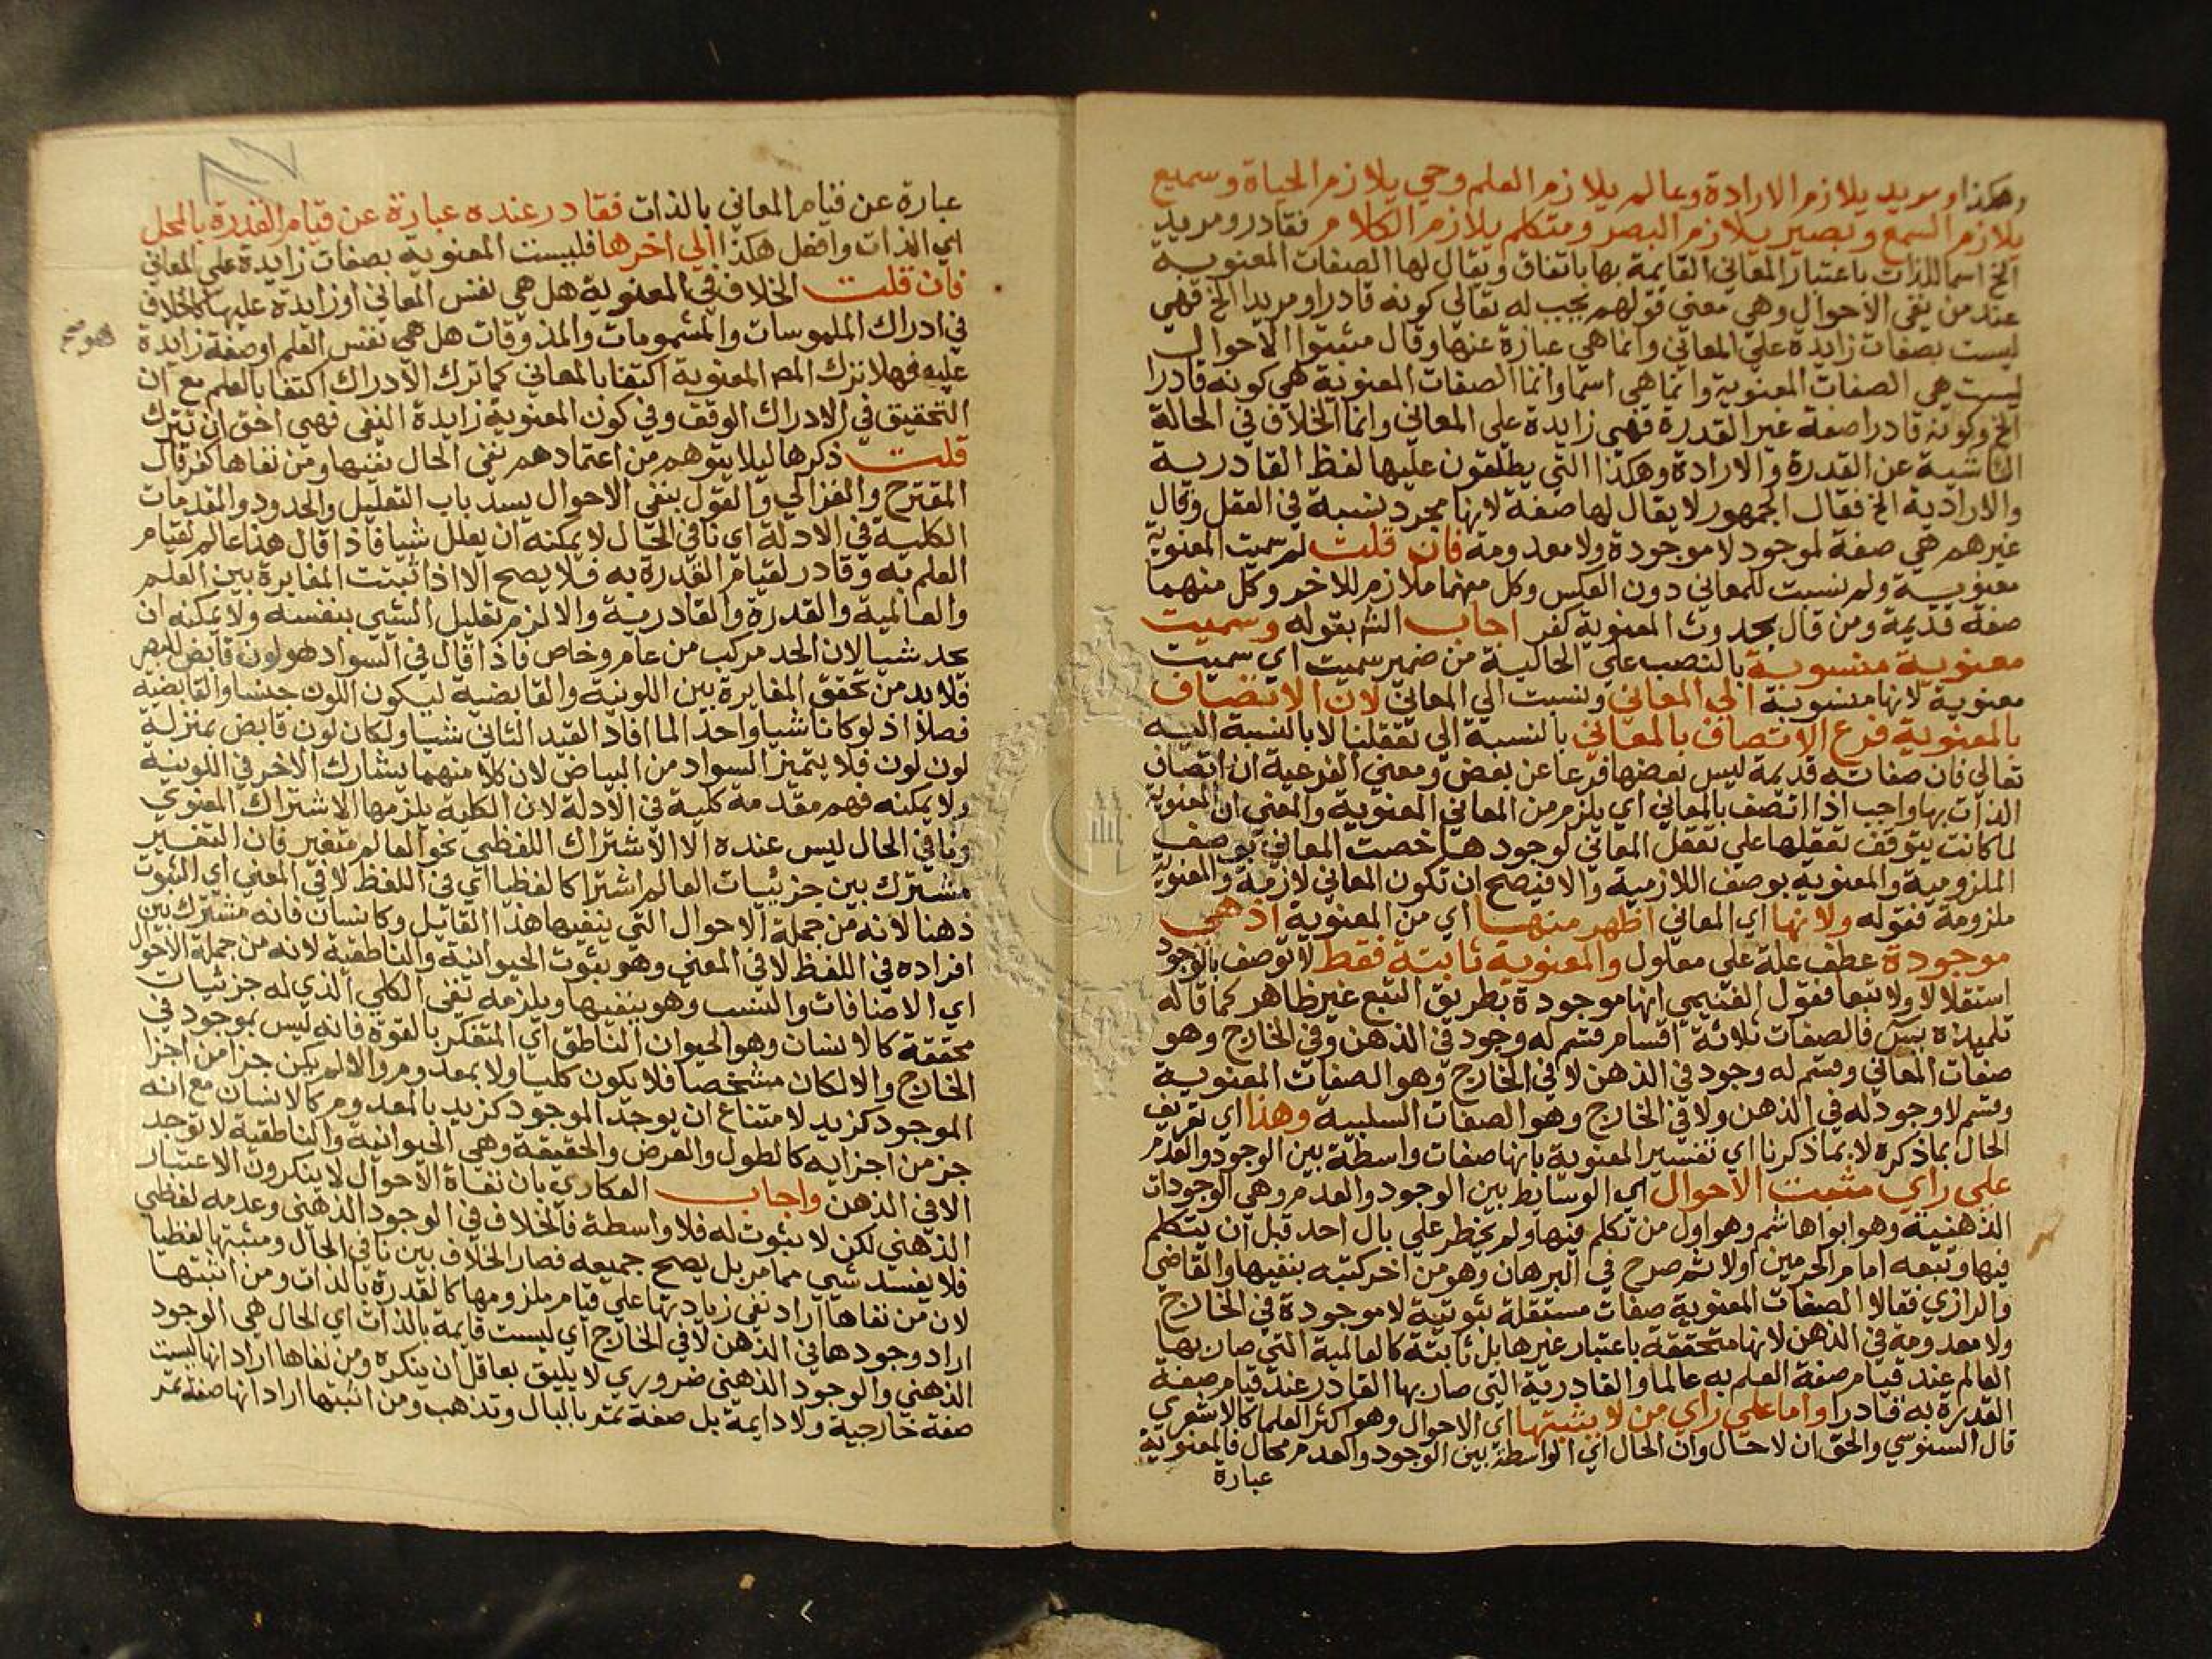 وهكذا ومريد يلازم الارادة وعالم يلازم العلم وحي يلازم الحياة وسميع
يلازم السمع وبصير يلازم البصر ومتكلم يلازم الكلام فقادر ومريد
الخ اسما للذات باعتبار المعاني القايمة بها باتفاق ويقال لها الصفات المعنوية
عند من نفي الاحوال وهي معني قولهم يجب له تعالي كونه قادرا ومريدا الخ فهي
ليست بصفات زايدة علي المعاني وانما هي عبارة عنها وقال مثبتوا الاحوال
ليست هي الصفات المعنوية وانما هي اسما وانما الصفات المعنوية هي كونه قادرا
الخ وكونه قادرا صفة غير القدرة فهي زايدة علي المعاني وانما الخلاف في الحالة
الناشية عن القدرة والارادة وهكذا التي يطلقون عليها لفظ القادرية
والارادية الخ فقال الجمهور لا يقال لها صفة لانها مجرد نسبة في العقل وقال
غيرهم هي صفة لموجود لا موجودة ولا معدومة فان قلت لم سميت المعنوية
معنوية ولم نسبت للمعاني دون العكس وكل منهما ملازم للاخر وكل منهما
صفة قديمة ومن قال بحدوث المعنوية كفر اجاب الش بقوله وسميت
معنوية منسوبة بالنصب علي الحالية من ضمير سميت اي سميت
معنوية لانها منسوبة الي المعاني ونسبت الي المعاني لان الاتصاف
بالمعنوية فرع الاتصاف بالمعاني بالنسبة الي تعقلنا لا بالنسبة اليه
تعالي فان صفاته قديمة ليس بعضها فرعا عن بعض ومعني الفرعية ان اتصاف
الذات بها واجب اذا اتصف بالمعاني اي يلزم من المعاني المعنوية والمعني ان المعنوية
لما كانت يتوقف تعقلها علي تعقل المعاني لوجودها خصت المعاني بوصف
الملزومية والمعنوية بوصف اللازمية والا فيصح ان تكون المعاني لازمة والمعنوية
ملزومة فقوله ولانها اي المعاني اظهر منها اي من المعنوية اذ هي
موجودة عطف علة علي معلول والمعنوية ثابتة فقط لا توصف بالوجود
استقلالا ولا تبعا فقول الغنيمي انها موجودة بطريق التبع غير ظاهر كما قاله
تلميذه يس فالصفات ثلاثة اقسام قسم له وجود في الذهن وفي الخارج وهو
صفات المعاني وقسم له وجود في الذهن لا في الخارج وهو الصفات المعنوية
وقسم لا وجود له في الذهن ولا في الخارج وهو الصفات السلبية وهذا اي تعريف
الحال بما ذكره لا بما ذكرنا اي تفسير المعنوية بانها صفات واسطة بين الوجود والعدم
علي راي مثبت الاحوال اي الوسايط بين الوجود والعدم وهي الوجودات
الذهنية وهو ابوا هاشم وهو اول من تكلم فيها ولم يخطر علي بال احد قبل ان يتكلم
فيها وتبعه امام الحرمين اولا ثم صرح في البرهان وهو من اخر كتبه بنفيها والقاضي
والرازي فقالا الصفات المعنوية صفات مستقلة ثبوتية لا موجودة في الخارج
ولا معدومة في الذهن لانها متحققة باعتبار غيرها بل ثابتة كالعالمية التي صار بها
العالم عند قيام صفة العلم به عالما والقادرية التي صار بها القادر عند قيام صفة
القدرة به قادرا واما علي راي من لا يثبتها اي الاحوال وهو اكثر العلما كالاشعري
قال السنوسي والحق ان لا حال وان الحال اي الواسطة بين الوجود والعدم محال فالمعنوية
عبارة
عبارة عن قيام المعاني بالذات فقادر عنده عبارة عن قيام القدرة بالمحل
اي الذات وافعل هكذا الي اخرها فليست المعنوية بصفات زايدة علي المعاني
فان قلت الخلاف في المعنوية هل هي نفس المعاني او زايدة عليها كالخلاف
في ادراك الملموسات والمشمومات والمذوقات هل هي نفس العلم او صفة زايدة
عليه فهلا ترك المص المعنوية اكتفا بالمعاني كما ترك الادراك اكتفا بالعلم مع ان
التحقيق في الادراك الوقف وفي كون المعنوية زايدة النفي فهي احق ان تترك
قلت ذكرها ليلا يتوهم من اعتمادهم نفي الحال نفيها ومن نفاها كفر قال
المقترح والغزالي والقول بنفي الاحوال يسد باب التعليل والحدود والمقدمات
الكلية في الادلة اي نافي الحال لا يمكنه ان يعلل شيا فاذا قال هذا عالم لقيام
العلم به وقادر لقيام القدرة به فلا يصح الا اذا ثبتت المغايرة بين العلم
والعالمية والقدرة والقادرية والا لزم تعليل الشي بنفسه ولا يمكنه ان
يحد شيا لان الحد مركب من عام وخاص فاذا قال في السواد هو لون قابض للبصر
فلا بد من تحقق المغايرة بين اللونية والقابضية ليكون اللون جنسا والقابضية
فصلا اذ لو كانا شيا واحدا لما افاد القيد الثاني شيا ولكان لون قابض بمنزلة
لون لون فلا يتميز السواد من البياض لان كلا منهما يشارك الاخر في اللونية
ولا يمكنه فهم مقدمة كلية في الادلة لان الكلية يلزمها الاشتراك المعنوي
ونافي الحال ليس عنده الا الاشتراك اللفظي نحو العالم متغير فان التغير
مشترك بين جزئيات العالم اشتراكا لفظيا اي في اللفظ لا في المعني اي الثبوت
ذهنا لانه من جملة الاحوال التي ينفيها هذا القايل وكانسان فانه مشترك بين
افراده في اللفظ لا في المعني وهو ثبوت الحيوانية والناطقية لانه من جملة الاحوال
اي الاضافات والنسب وهو ينفيها ويلزمه نفي الكلي الذي له جزئيات
محققة كالانسان وهو الحيوان الناطق اي المتفكر بالقوة فانه ليس بموجود في
الخارج والا لكان مشخصا فلا يكون كليا ولا بمعدوم والا لم يكن جزا من اجزا
الموجود كزيد لامتناع ان يوجد الموجود كزيد بالمعدوم كالانسان مع انه
جز من اجزايه كالطول والعرض والحقيقة وهي الحيوانية والناطقية لا توجد
الا في الذهن واجاب العكاري بان نفاة الاحوال لا ينكرون الاعتبار
الذهني لكن لا ثبوت له فلا واسطة فالخلاف في الوجود الذهني وعدمه لفظي
فلا يفسد شي مما مر بل يصح جميعه فصار الخلاف بين نافي الحال ومثبتها لفظيا
لان من نفاها اراد نفي زيادتها علي قيام ملزومها كالقدرة بالذات ومن اثبتها
اراد وجودها في الذهن لا في الخارج اي ليست قايمة بالذات اي الحال هي الوجود
الذهني والوجود الذهني ضروري لا يليق بعاقل ان ينكره ومن نفاها اراد انها ليست
صفة خارجية ولا دايمة بل صفة تمر بالبال وتذهب ومن اثبتها اراد انها صفة تمر